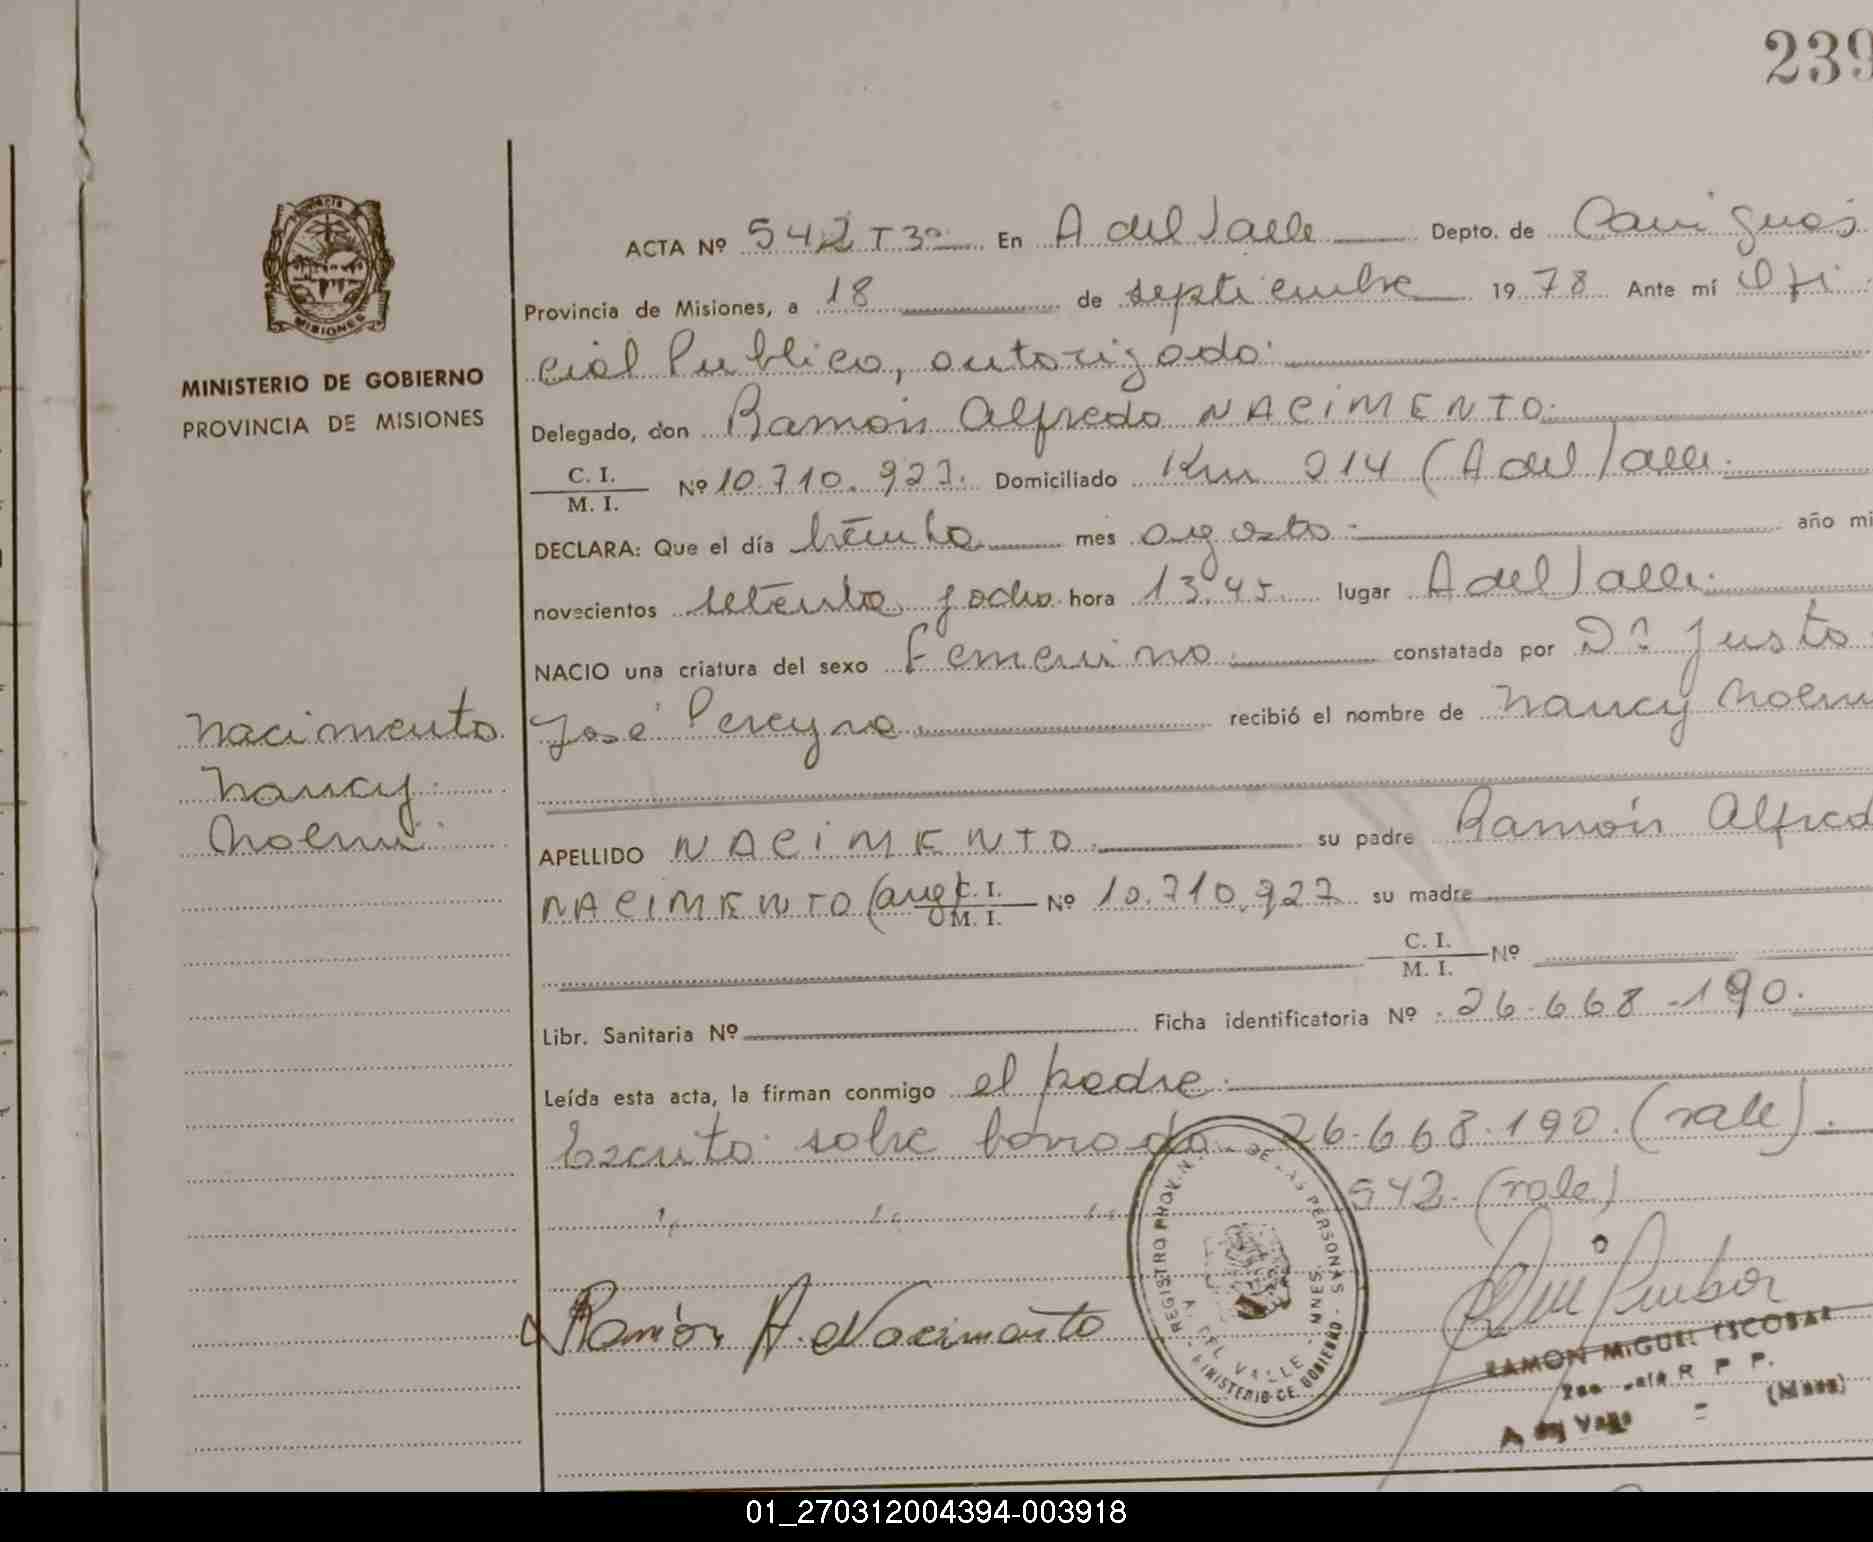 239
PROVINCIA
MISIONES
MINISTERIO DE GOBIERNO
PROVINCIA DE MISIONES
ACTA Nº 542 T 3º En A del Valle Depto. de Cainguás
Provincia de Misiones, a 18 de septiembre 1978 Ante mí Ofi
cial Publico, autorizado
Delegado, don Ramón Alfredo NACIMENTO
C. I.
M. I.
Nº 10.710.927. Domiciliado Km 214 (A del Valle.
DECLARA: Que el día treinta mes agosto año mi
novecientos setenta y ocho hora 13.45. lugar A del Valle.
NACIO una criatura del sexo Femenino constatada por Dº Justo
José Pereyra recibió el nombre de Nancy Noemi
Nacimento
Nancy
Noemi
APELLIDO NACIMENTO su padre Ramón Alfred
NACIMENTO (arg) C. I.
M. I. Nº 10.710.927 su madre
C. I.
M. I. Nº
Libr. Sanitaria Nº Ficha identificatoria Nº 26.668.190.
Leída esta acta, la firman conmigo el padre.
Escrito sobre borrado 26.668.190. (vale).
" " " 542. (vale)
Ramón A. Nacimento
REGISTRO PROV. DE LAS PERSONAS
A. DEL VALLE - MNES.
MINISTERIO DE GOBIERNO
RAMON MIGUEL ESCOBAR
R P P.
A. del Valle = (Mnes)
01_270312004394-003918